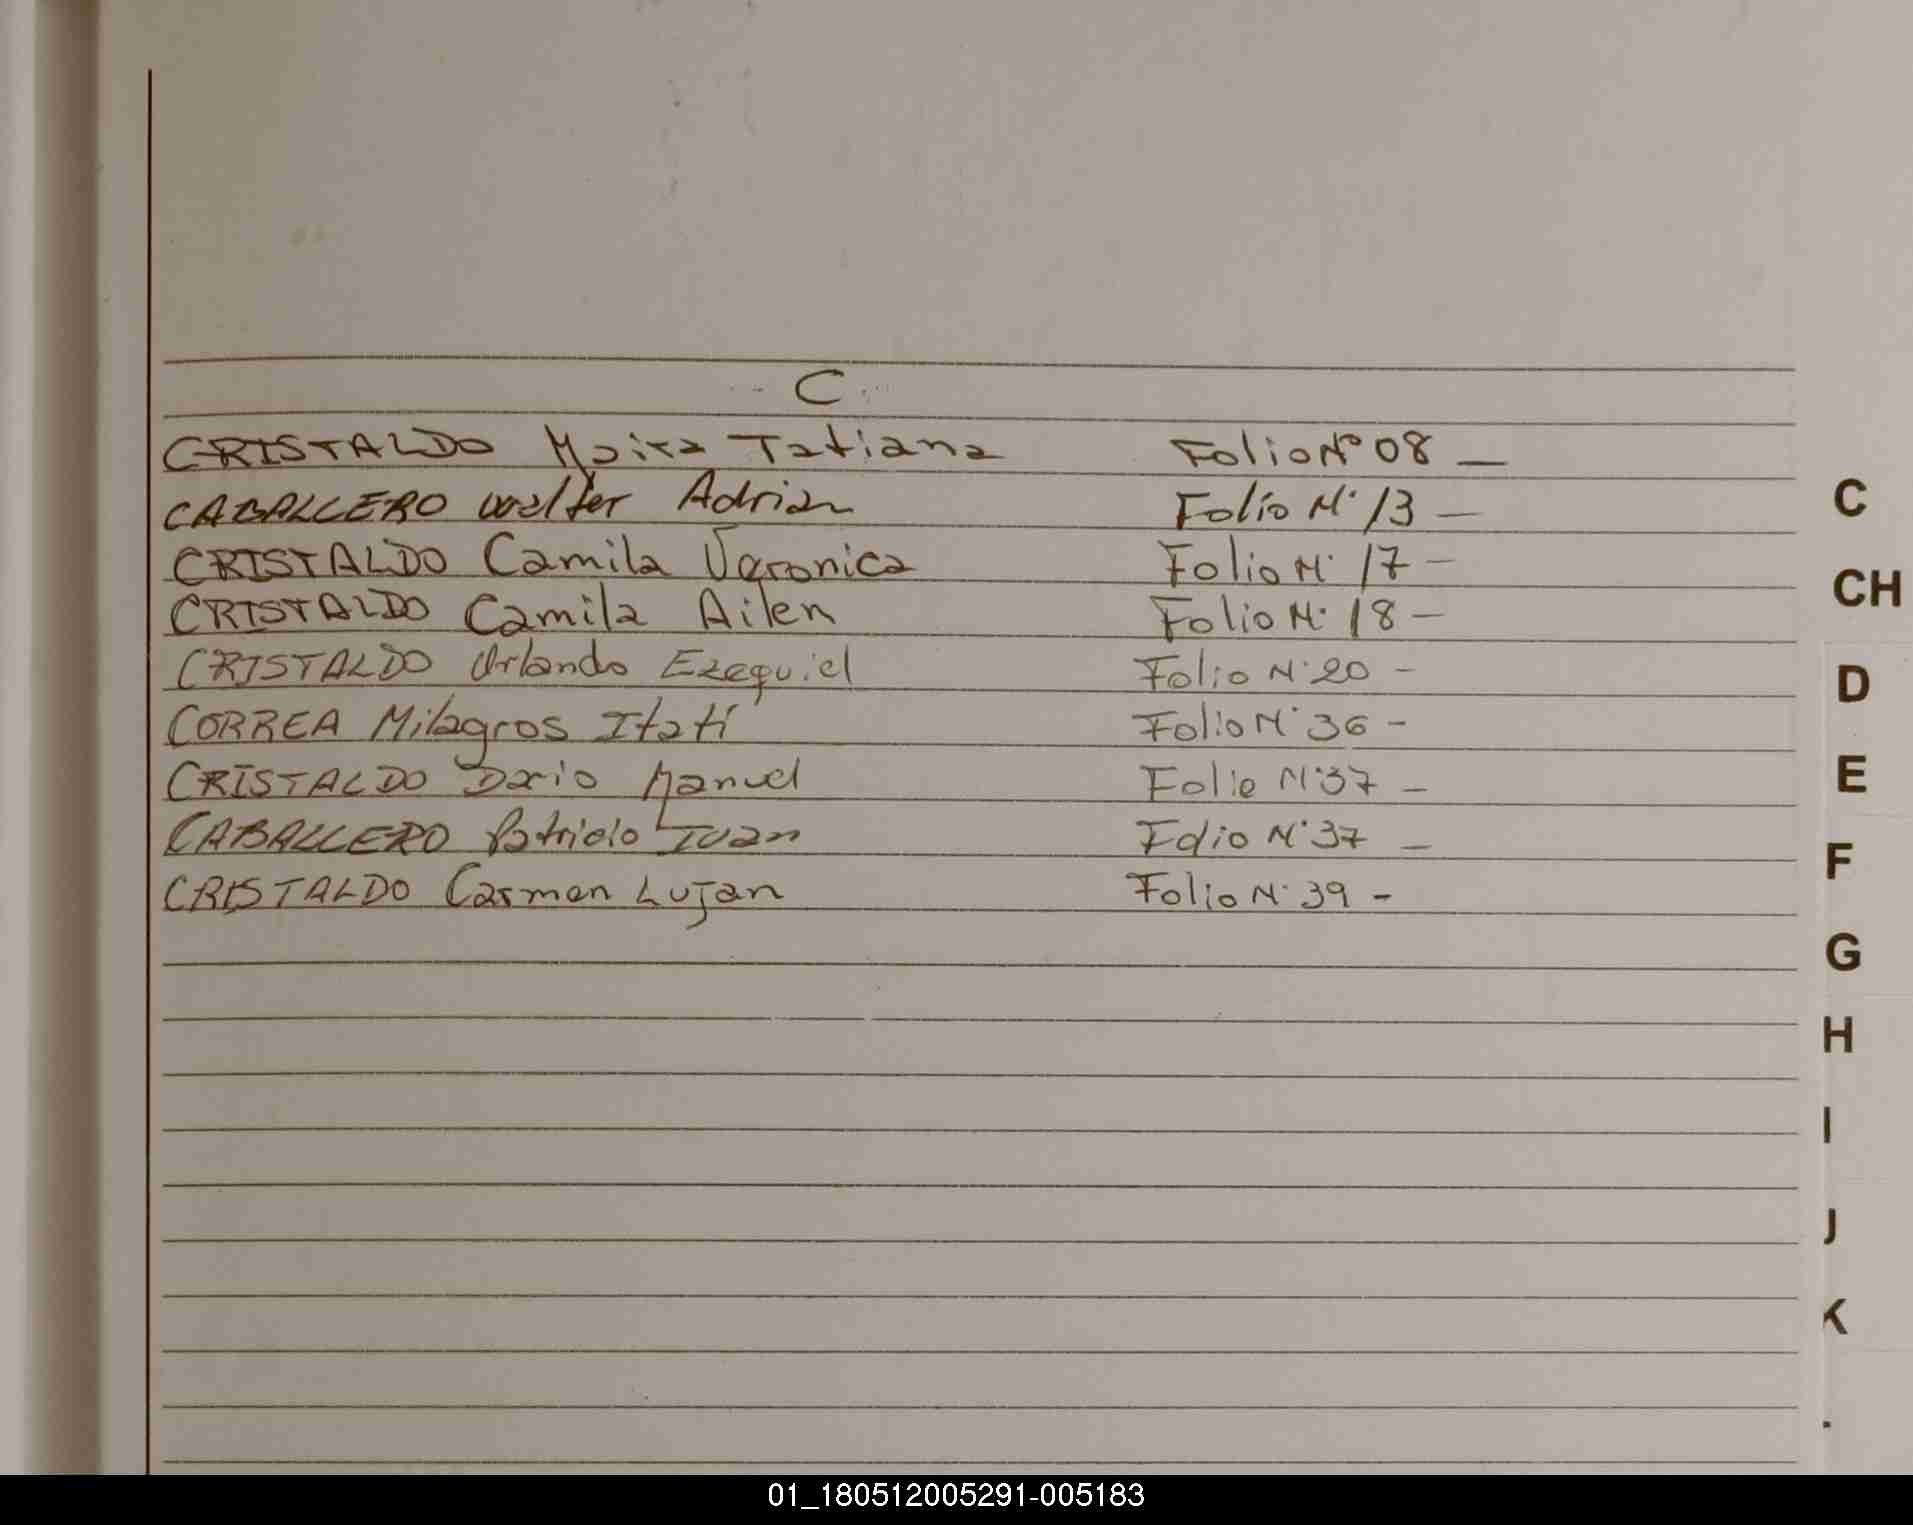 C
CRISTALDO Maira Tatiana Folio Nº 08 —
CABALLERO Walter Adrian Folio N· 13 —
CRISTALDO Camila Veronica Folio N· 17 —
CRISTALDO Camila Ailen Folio N· 18 —
CRISTALDO Orlando Ezequiel Folio N· 20 —
CORREA Milagros Itatí Folio N· 36 —
CRISTALDO Dario Manuel Folio N· 37 —
CABALLERO Patricio Ivan Folio N· 37 —
CRISTALDO Carmen Lujan Folio N· 39 -
C
CH
D
E
F
G
H
I
J
K
01_180512005291-005183